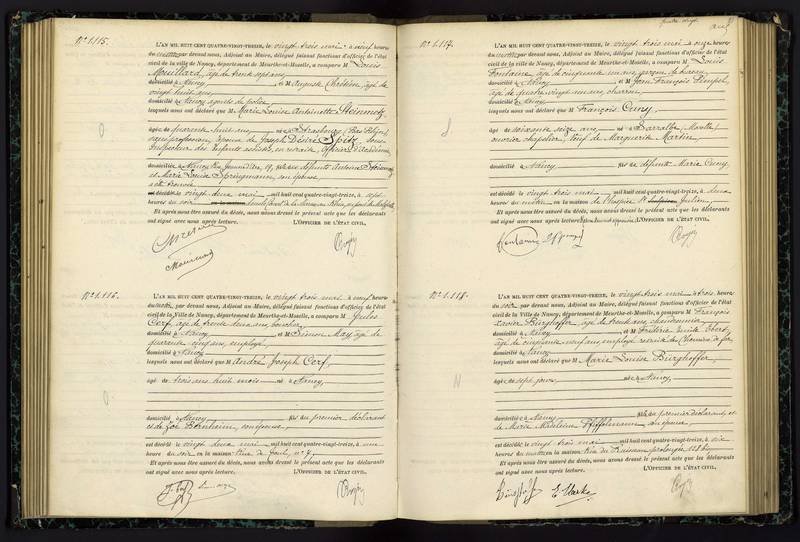 N° 1.115.
L'AN MIL HUIT CENT QUATRE-VINGT-TREIZE, le vingt trois mai à neuf heures
du matin par devant nous, Adjoint au Maire, délégué faisant fonctions d'officier de l'état
civil de la ville de Nancy, département de Meurthe-et-Moselle, a comparu M Louis
Mouillard, âgé de trente sept ans,
domicilié à Nancy et M Auguste Chrétien, âgé de
vingt huit ans
domicilié à Nancy, agents de police
lesquels nous ont déclaré que Marie Louise Antoinette Steinmetz
âgée de quarante huit ans née à Strasbourg (Bas Rhin)
sans profession, épouse de Joseph Désiré Spitz, Sous
Inspecteur des Enfants assistés, en retraite, Officier d'Académie
domiciliée à Nancy, Rue Jeanne d'Arc, 19, fille des défunts Antoine Steinmetz
et Marie Louise Springmann, son épouse,
a été trouvée
est décédée le vingt deux mai mil huit cent quatre-vingt-treize, à sept
heures du soir
Et après nous être assuré du décès, nous avons dressé le présent acte que les déclarants
ont signé avec nous après lecture. L'OFFICIER DE L'ÉTAT CIVIL,
N° 1.116.
L'AN MIL HUIT CENT QUATRE-VINGT-TREIZE, le vingt trois mai à neuf heures
du matin, par devant nous, Adjoint au Maire, délégué faisant fonctions d'officier de l'état
civil de la Ville de Nancy, département de Meurthe-et-Moselle, a comparu M Jules
Cerf, âgé de trente deux ans, boucher
domicilié à Nancy et M Simon May, âgé de
quarante cinq ans, employé,
domicilié à Nancy
lesquels nous ont déclaré que M André Joseph Cerf,
âgé de trois ans huit mois né à Nancy
domicilié à Nancy fils du premier déclarant
et de Zoé Bernheim, son épouse,
est décédé le vingt deux mai mil huit cent quatre-vingt-treize, à une
heure du soir en la maison Rue de
Et après nous être assuré du décès, nous avons dressé le présent acte que les déclarants
ont signé avec nous après lecture. L'OFFICIER DE L'ÉTAT CIVIL,
N° 1.117.
L'AN MIL HUIT CENT QUATRE-VINGT-TREIZE, le vingt trois mai à onze heures
du matin par devant nous, Adjoint au Maire, délégué faisant fonctions d'officier de l'état
civil de la ville de Nancy, département de Meurthe-et-Moselle, a comparu M Louis
Fontaine, âgé de cinquante un ans, garçon de bureau
domicilié à Nancy et M Jean François Simpol,
âgé de quatre vingt un ans, charron
domicilié à Nancy
lesquels nous ont déclaré que M François Cuny,
âgé de soixante seize ans né à Sarralbe (Moselle)
ouvrier chapelier, Veuf de Marguerite Martin,
domicilié à Nancy fils de défunte Marie Cuny,
est décédé le vingt trois mai mil huit cent quatre-vingt-treize, à deux
heures du matin en la maison de l'hospice St Julien,
Et après nous être assuré du décès, nous avons dressé le présent acte que les déclarants
ont signé avec nous après lecture. L'OFFICIER DE L'ÉTAT CIVIL,
N° 1.118.
L'AN MIL HUIT CENT QUATRE-VINGT-TREIZE, le vingt trois mai à trois heures
du soir, par devant nous, Adjoint au Maire, délégué faisant fonctions d'officier de l'état
civil de la Ville de Nancy, département de Meurthe-et-Moselle, a comparu M François
Xavier Burghoffer, âgé de trente ans, chaudronnier
domicilié à Nancy et M Frédéric Emile Ebert
âgé de cinquante neuf ans, employé retraité des Chemins de fer,
domicilié à Nancy
lesquels nous ont déclaré que M Marie Louise Burghoffer,
âgée de sept jours née à Nancy,
domiciliée à Nancy fille du premier déclarant, et
de Marie Madeleine Pfiffelmann son épouse,
est décédée le vingt trois mai mil huit cent quatre-vingt-treize, à six
heures du matin en la maison Rue du Ruisseau prolongée 128 bis
Et après nous être assuré du décès, nous avons dressé le présent acte que les déclarants
ont signé avec nous après lecture. L'OFFICIER DE L'ÉTAT CIVIL,